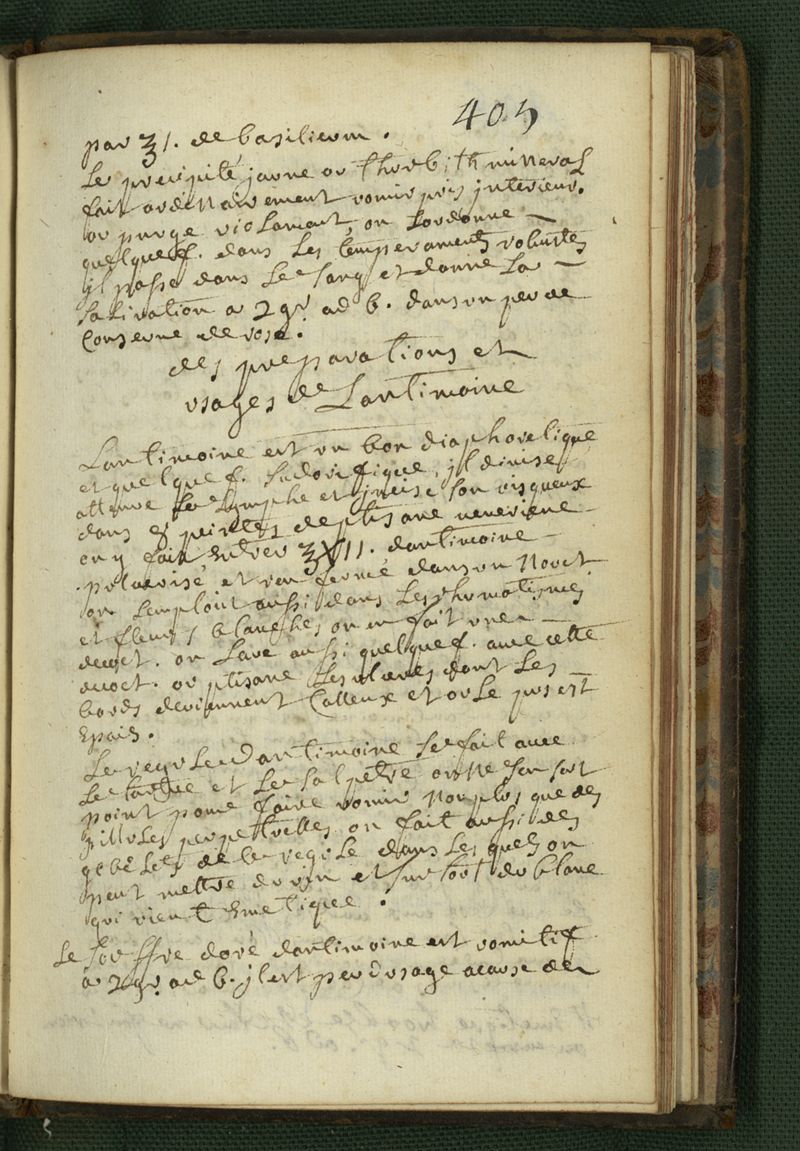 405
par ʒ1. de basilicum.
Le precipité jaune ou thurbith mineral
fait ordinairement vomir pris interieur.
ou purge violament, on Lordonne
quelquef. dans Les temperaments robustes
jl passe dans Le sang et donne La
salivation a 2 gr. ad 6. dans un peu de
Conserve de rose.
des preparations et
usages de Lantimoine
Lantimoine est un bon diaphoretique
et quelquef. sudorifique, jl divise
attenue La Lymphe et jncise son visqueux
dans 8 peintes de ptisane veneriene
on y fait entrer ʒXII. dantimoine
pulverisé et renfermé dans un Nouet
on Lemploit aussi dans Les rhumatismes
et fleurs blanches on en fait une
decoct. on Lave aussi quelquef. avec cette
decoct. ou ptisane Les ulceres dont Les
bords deviennent Calleux et ou Le pus est
Epais.
Le regule dantimoine se fait avec
Le tartre et Le salpetre on ne sen sert
point pour faire vomir Non plus que des
pillules perpetuelles on fait aussi des
gobelets de Le regule dans Les quels on
peut mettre du vin et sur tout du blanc
qui vient Emetique.
Le souffre doré dantimoine est vomitif
a 2 gr. ad 6. jl est peu dusage acause de